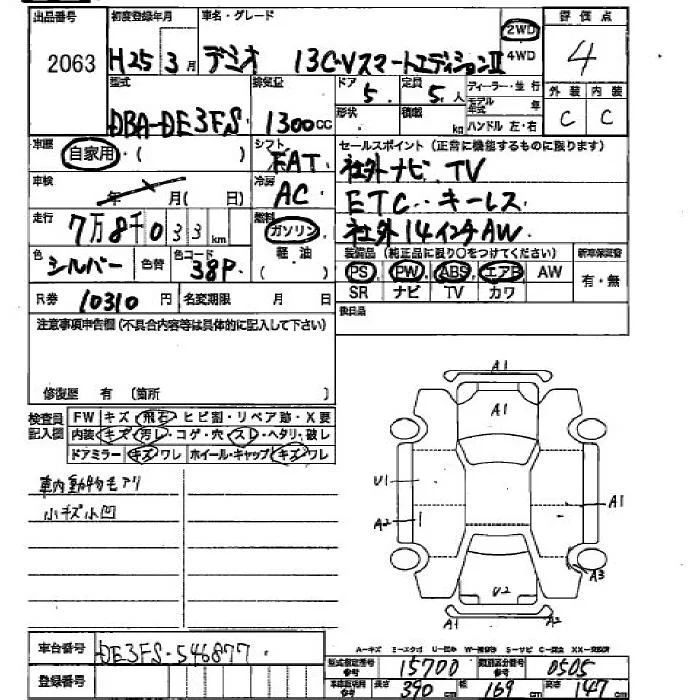 出品番号 初度登録年月 車名・グレード 評価点
2063 H25 3月 デミオ 13C-Vスマートエディション II 2WD 4WD 4
型式 排気量 ドア 定員 ディーラー・並行 外装 内装
DBA-DE3FS 1300cc 5 5人 モデル年式 年 C C
形状 積載 kg ハンドル 左・右
車歴 自家用・( ) シフト FAT セールスポイント (正常に機能するものに限ります)
社外ナビ. TV
車検 年 月(日) 冷房 AC ETC・・キーレス
走行 7万8千033km 燃料 ガソリン 社外14インチAW
軽油 ( ) 装備品 (純正品に限り○をつけてください) 新車保証書
色 シルバー 色替 色コード 38P PS PW ABS エアB AW 有・無
SR ナビ TV カワ
R券 10310円 名変期限 月 日 後日品
注意事項申告欄(不具合内容等は具体的に記入して下さい)
修復歴 有 〔箇所 〕
検査員記入欄 FW キズ・飛石・ヒビ割・リペア跡・X要
内装 キズ・汚レ・コゲ・穴・スレ・ヘタリ・破レ
ドアミラー キズ・ワレ ホイール・キャップ キズ・ワレ
A1
A1
車内動物毛アリ U1 A1
小キズ小凹 A2
A3
U2
A1 A2
車台番号 DE3FS-546877
型式指定番号 参考 15700 類別区分番号 参考 0505
登録番号 車体寸法 参考 長さ 390cm 幅 169cm 高さ 147cm